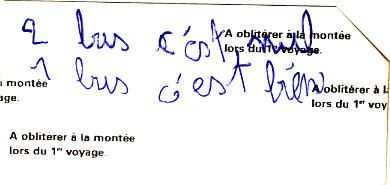 2 bus c'est nul
A oblitérer à la montée
lors du 1er voyage.
1 bus c'est bien
la montée
age.
A oblitérer à l
lors du 1er voy
A oblitérer à la montée
lors du 1er voyage.